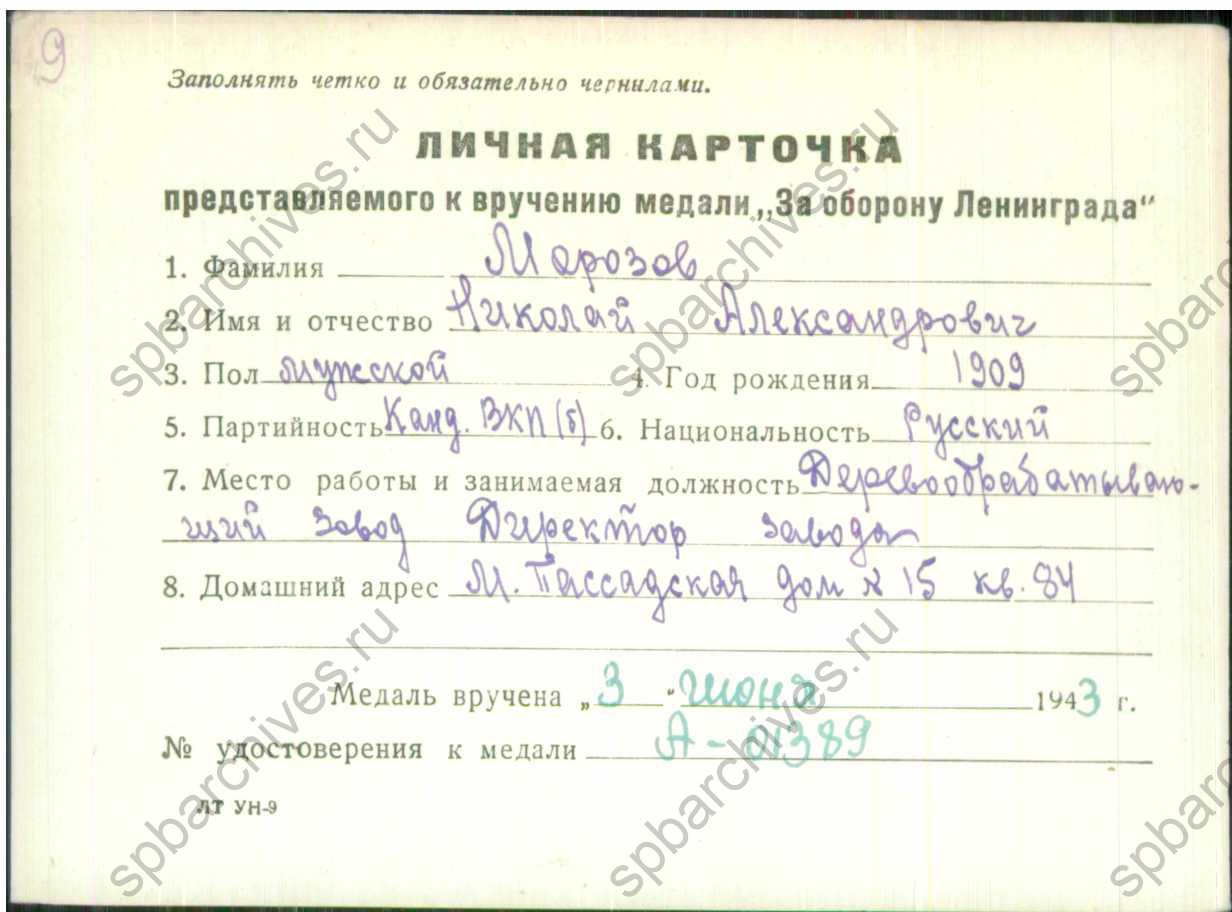 9
Заполнять четко и обязательно чернилами.
ЛИЧНАЯ КАРТОЧКА
представляемого к вручению медали „За оборону Ленинграда“
1. Фамилия Морозов
2. Имя и отчество Николай Александрович
3. Пол мужской 4. Год рождения 1909
5. Партийность Канд. ВКП(б) 6. Национальность Русский
7. Место работы и занимаемая должность Деревообрабатываю-
щий завод Директор завода
8. Домашний адрес М. Пассадская дом № 15 кв. 84
Медаль вручена „3“ июня 1943 г.
№ удостоверения к медали А-01389
ЛТ УН-9
spbarchives.ru
spbarchives.ru
spbarchives.ru
spbarchives.ru
spbarchives.ru
spbarchives.ru